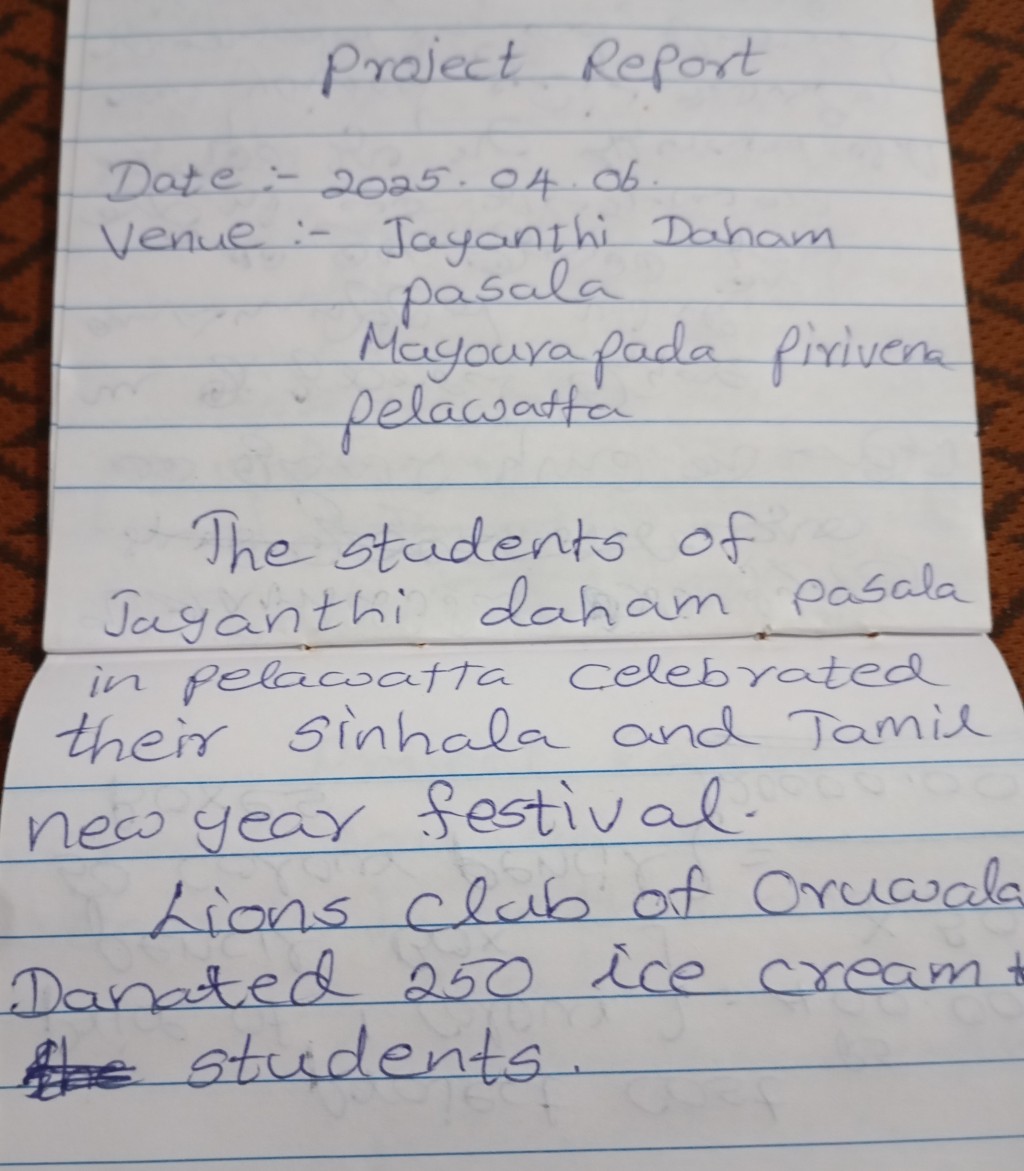 Project Report
Date :- 2025.04.06.
Venue :- Jayanthi Daham
pasala
Mayourapada Pirivena
pelawatta
The students of
Jayanthi daham pasala
in pelawatta celebrated
their Sinhala and Tamil
new year festival.
Lions Club of Oruwala
Danated 250 ice cream
students.